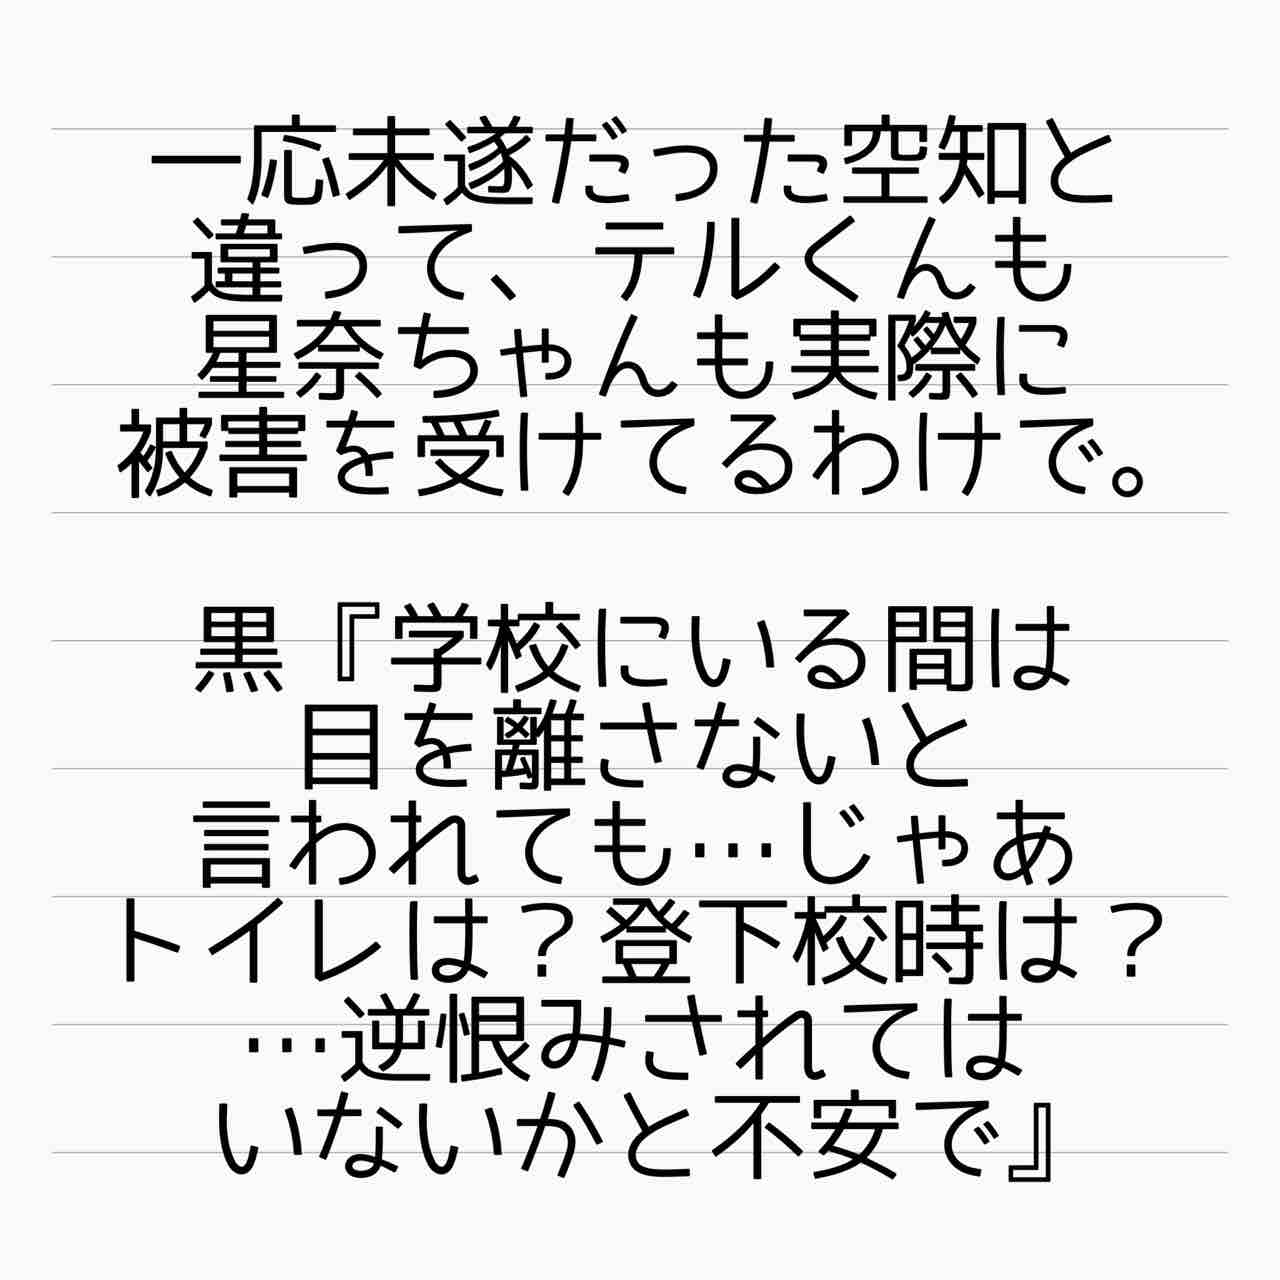 一応未遂だった空知と
違って、テルくんも
星奈ちゃんも実際に
被害を受けてるわけで。
黒『学校にいる間は
目を離さないと
言われても…じゃあ
トイレは？登下校時は？
…逆恨みされては
いないかと不安で』